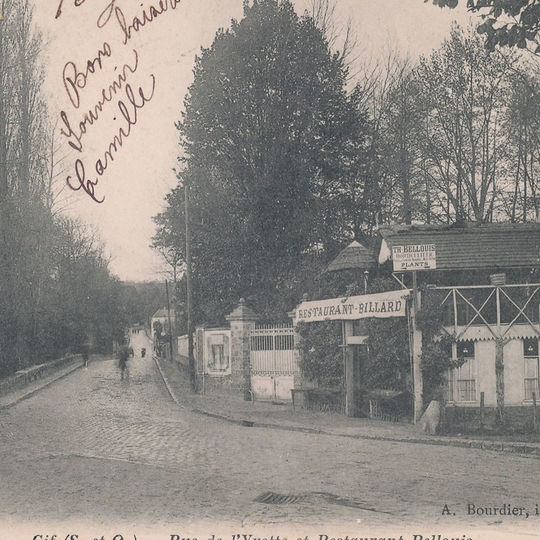 Bons baisers
Souvenir
Camille
TH. BELLOUIS
HORTICULTEUR
PLANTS
RESTAURANT-BILLARD
A. Bourdier, i
Gif (S. et O.) Rue de l'Yvette et Restaurant Bellouis